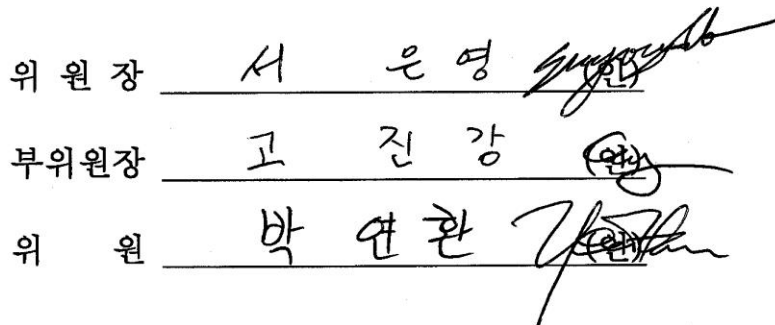 위 원 장 서 은 영 (인)
부위원장 고 진 강 (인)
위 원 박 연 환 (인)